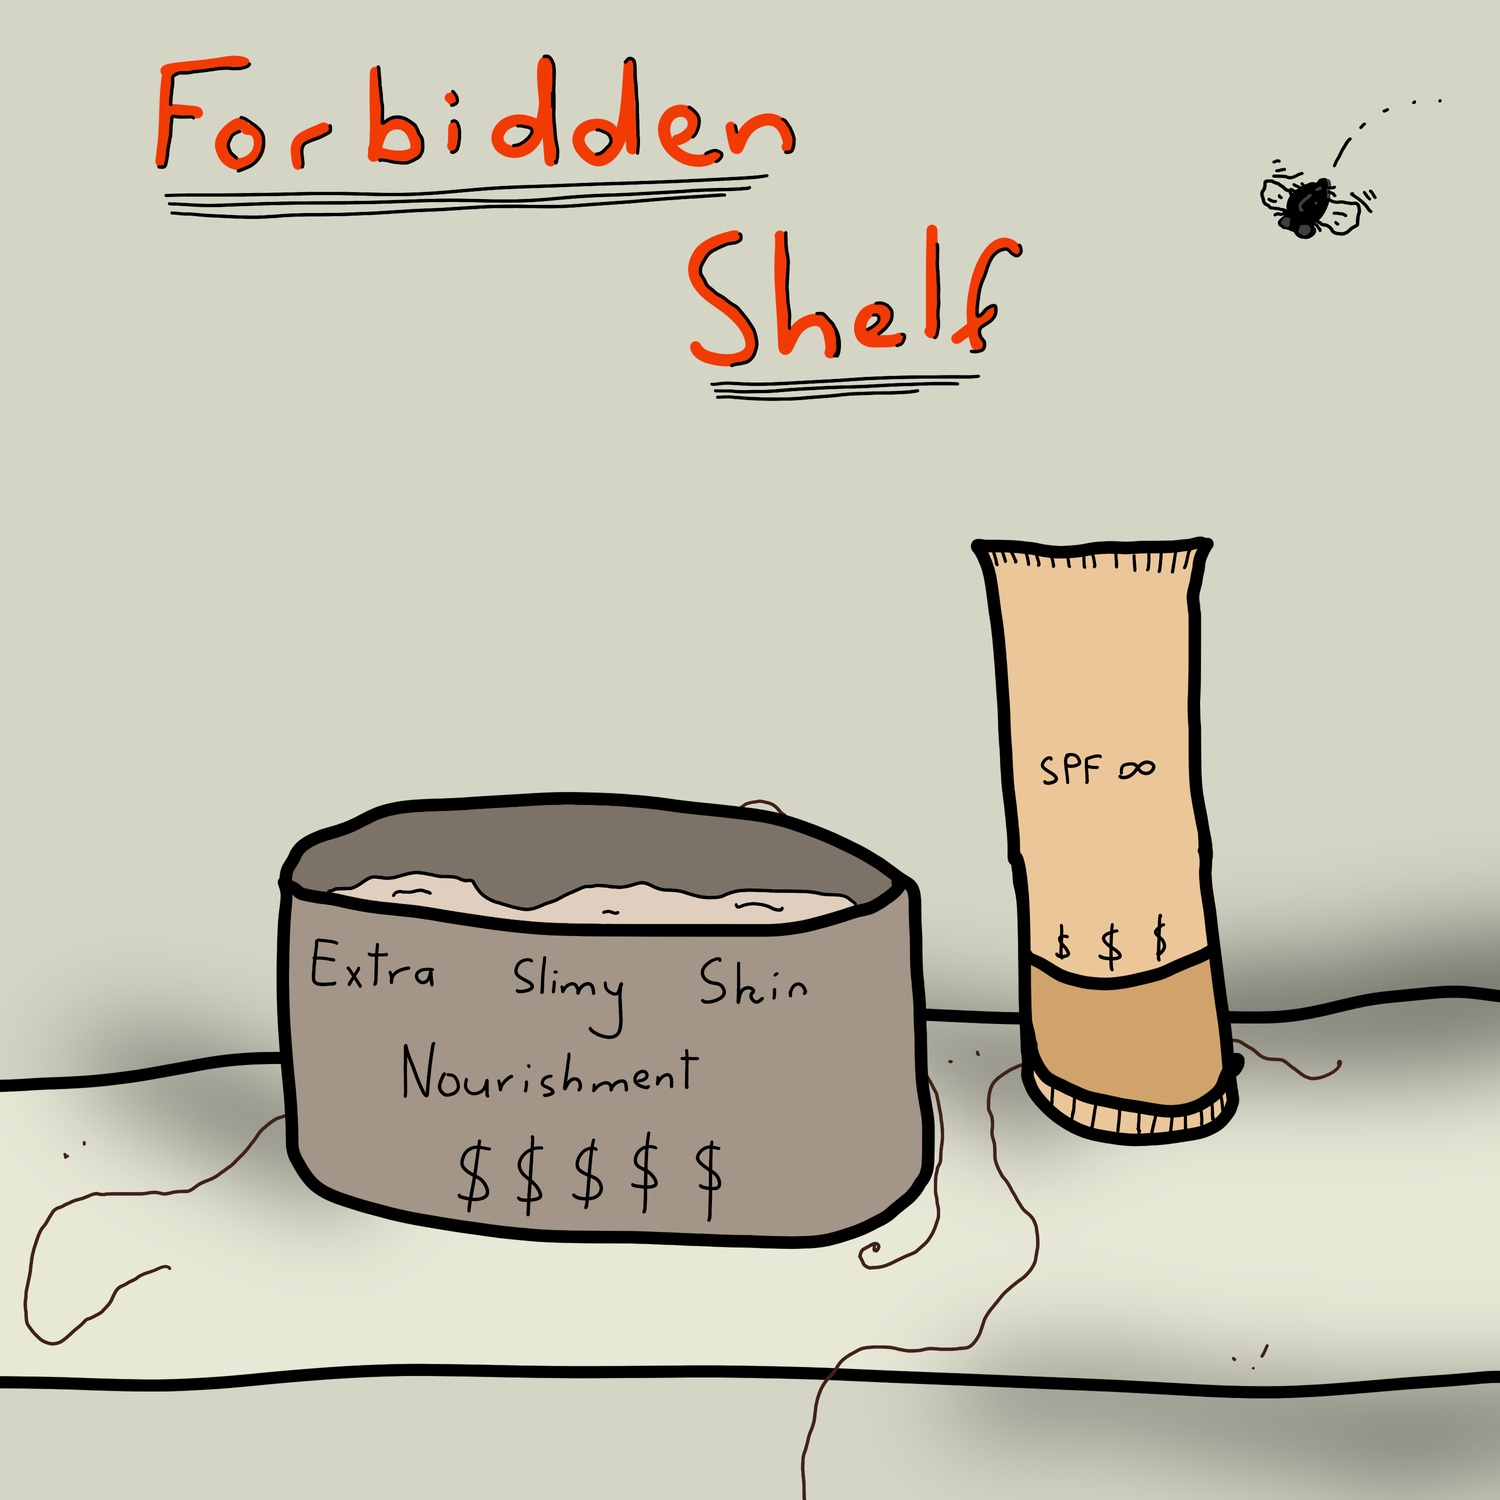 Forbidden
Shelf
SPF ∞
$ $ $
Extra Slimy Skin
Nourishment
$ $ $ $ $